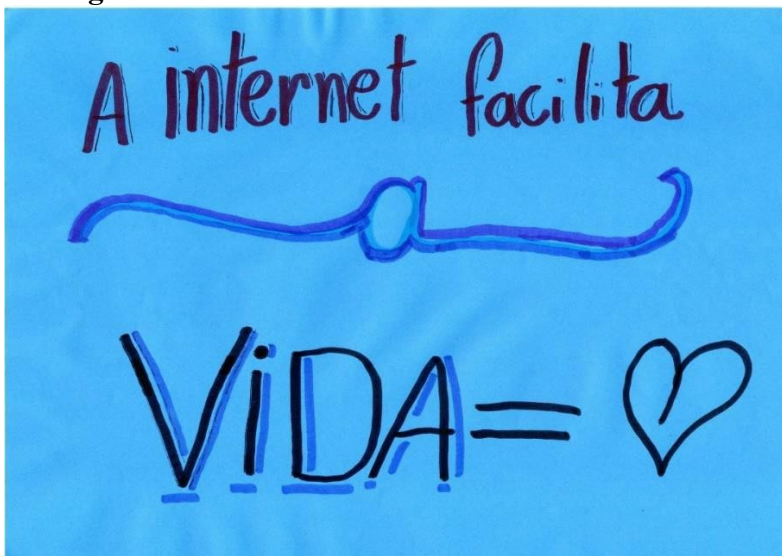 A internet facilita
a
VIDA = ♡